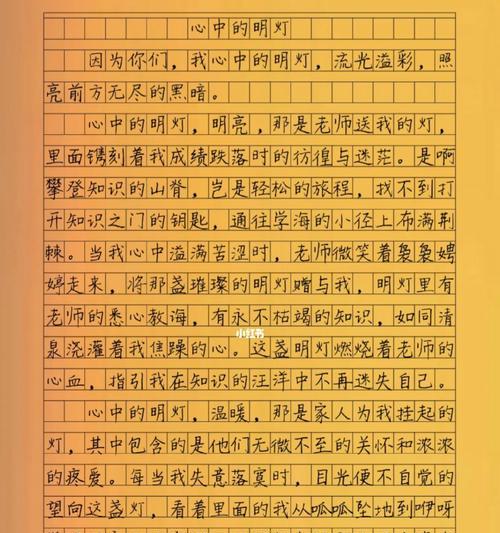 心中的明灯
因为你们，我心中的明灯，流光溢彩，照
亮前方无尽的黑暗。
心中的明灯，明亮，那是老师送我的灯，
里面镌刻着我成绩跌落时的彷徨与迷茫。是啊
攀登知识的山脊，岂是轻松的旅程，找不到打
开知识之门的钥匙，通往学海的小径上布满荆
棘。当我心中溢满苦涩时，老师微笑着袅袅娉
婷走来，将那盏璀璨的明灯赠与我，明灯里有
老师的悉心教诲，有永不枯竭的知识，如同清
小红书
泉浇灌着我焦躁的心。这盏明灯燃烧着老师的
心血，指引我在知识的汪洋中不再迷失自己。
心中的明灯，温暖，那是家人为我挂起的
灯，其中包含的是他们无微不至的关怀和浓浓
的疼爱。每当我失意落寞时，目光便不自觉的
望向这盏灯，看着里面的我从呱呱坠地到咿呀